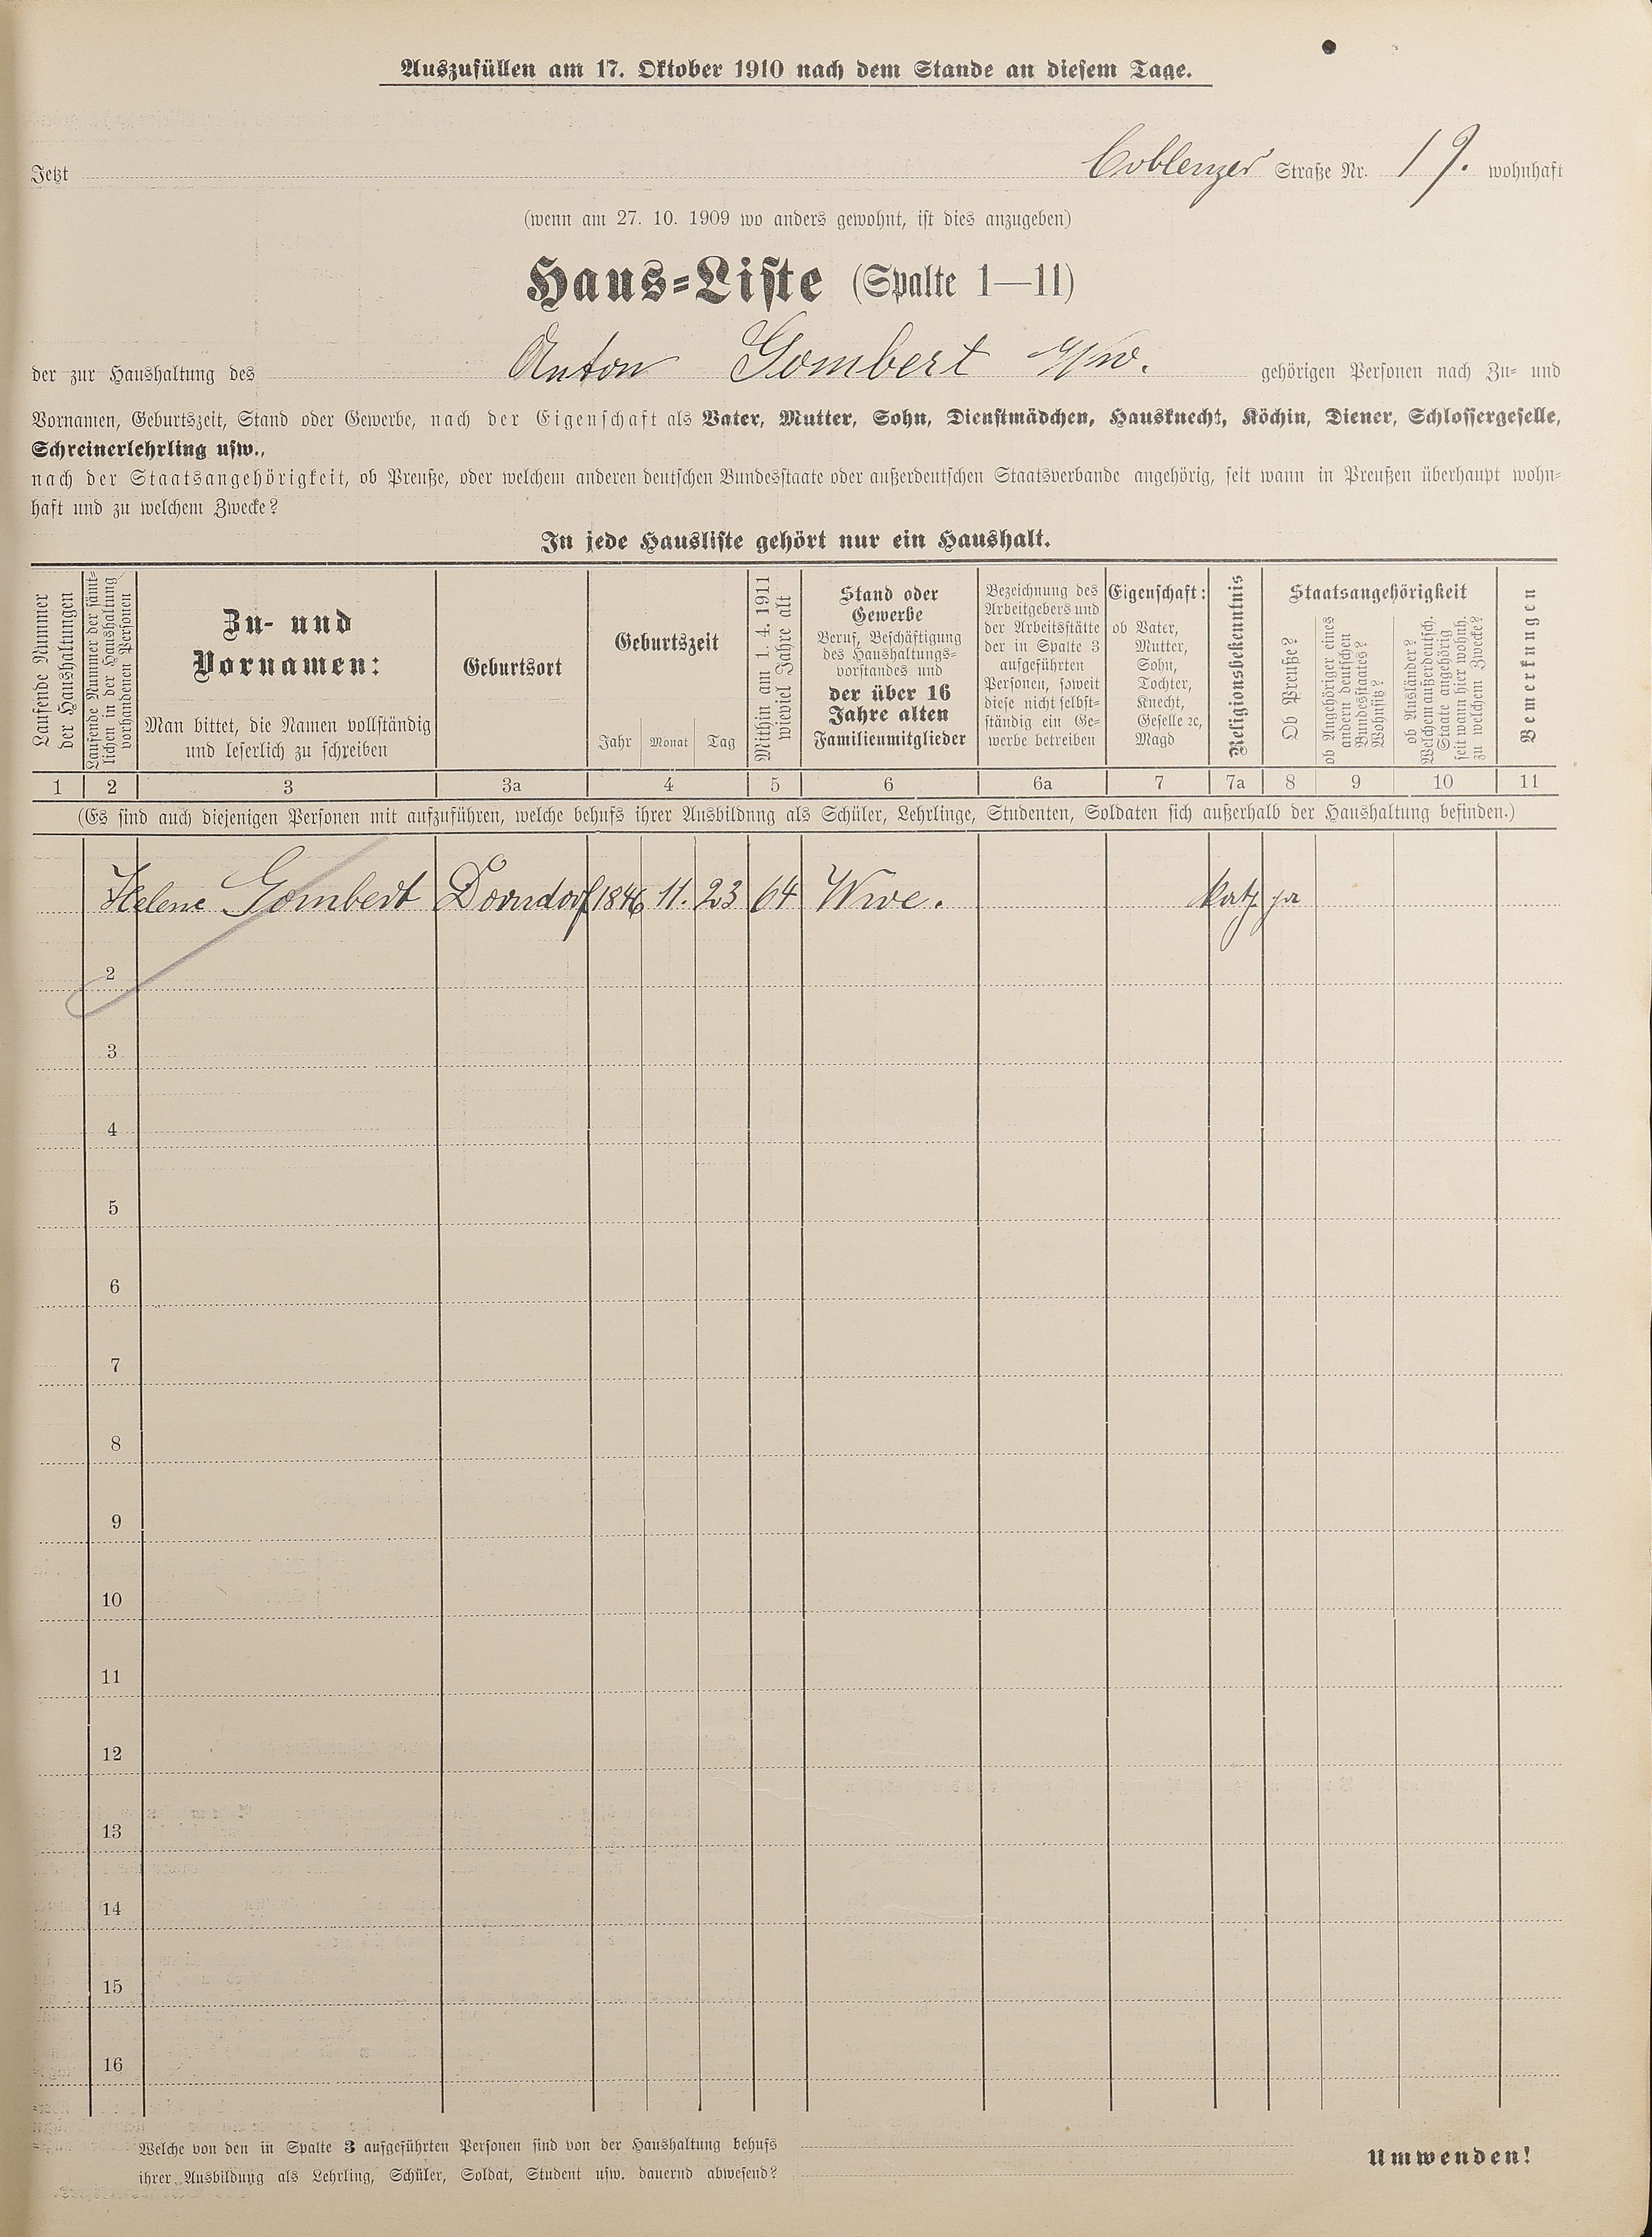 Auszufüllen am 17. Oktober 1910 nach dem Stande an diesem Tage.
Jetzt Coblenzer Straße Nr. 19. wohnhaft
(wenn am 27. 10. 1909 wo anders gewohnt, ist dies anzugeben)
Haus-Liste (Spalte 1—11)
der zur Haushaltung des Anton Gombert Ww. gehörigen Personen nach Zu- und
Vornamen, Geburtszeit, Stand oder Gewerbe, nach der Eigenschaft als Vater, Mutter, Sohn, Dienstmädchen, Hausknecht, Köchin, Diener, Schlossergeselle,
Schreinerlehrling usw.,
nach der Staatsangehörigkeit, ob Preuße, oder welchem anderen deutschen Bundesstaate oder außerdeutschen Staatsverbande angehörig, seit wann in Preußen überhaupt wohn-
haft und zu welchem Zwecke?
In jede Hausliste gehört nur ein Haushalt.
Laufende Nummer
der Haushaltungen
Laufende Nummer der sämt-
lichen in der Haushaltung
vorhandenen Personen
Zu- und
Vornamen:
Man bittet, die Namen vollständig
und leserlich zu schreiben
Geburtsort
Geburtszeit
Jahr Monat Tag
Mithin am 1. 4. 1911
wieviel Jahre alt
Stand oder
Gewerbe
Beruf, Beschäftigung
des Haushaltungs-
vorstandes und
der über 16
Jahre alten
Familienmitglieder
Bezeichnung des
Arbeitgebers und
der Arbeitsstätte
der in Spalte 3
aufgeführten
Personen, soweit
diese nicht selbst-
ständig ein Ge-
werbe betreiben
Eigenschaft:
ob Vater,
Mutter,
Sohn,
Tochter,
Knecht,
Geselle ꝛc,
Magd
Religionsbekenntnis
Staatsangehörigkeit
Ob Preuße?
ob Angehöriger eines
andern deutschen
Bundesstaates?
Wohnsitz?
ob Ausländer?
Welchem außerdeutsch.
Staate angehörig
seit wann hier wohnh.
zu welchem Zwecke?
Bemerkungen
1 2 3 3a 4 5 6 6a 7 7a 8 9 10 11
(Es sind auch diejenigen Personen mit aufzuführen, welche behufs ihrer Ausbildung als Schüler, Lehrlinge, Studenten, Soldaten sich außerhalb der Haushaltung befinden.)
Helene Gombert Dorndorf 1846 11. 23 64 Wwe. kath ja
2
3
4
5
6
7
8
9
10
11
12
13
14
15
16
Welche von den in Spalte 3 aufgeführten Personen sind von der Haushaltung behufs
ihrer Ausbildung als Lehrling, Schüler, Soldat, Student usw. dauernd abwesend?
Umwenden!